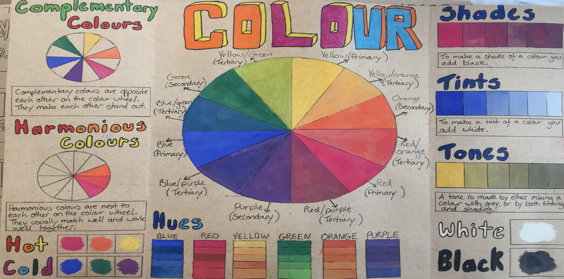 Complementary
Colours
Complementary colours are opposite
each other on the colour wheel.
They make each other stand out.
Harmonious
Colours
Harmonious colours are next to
each other on the colour wheel.
They usually match well and work
well together.
Hot
Cold
COLOUR
Yellow/Green
(Tertiary)
Yellow(Primary)
Green
(Secondary)
Yellow/orange
(Tertiary)
Orange
(Secondary)
Blue/green
(Tertiary)
Blue
(Primary)
Red/
orange
(Tertiary)
Blue/purple
(Tertiary)
Red
(Primary)
Purple
(Secondary)
Red/purple
(Tertiary)
Hues
BLUE RED YELLOW GREEN ORANGE PURPLE
Shades
To make a shade of a colour you
add black.
Tints
To make a tint of a colour you
add white.
Tones
A tone is made by either mixing a
colour with grey, or by both tinting
and shading.
White
Black